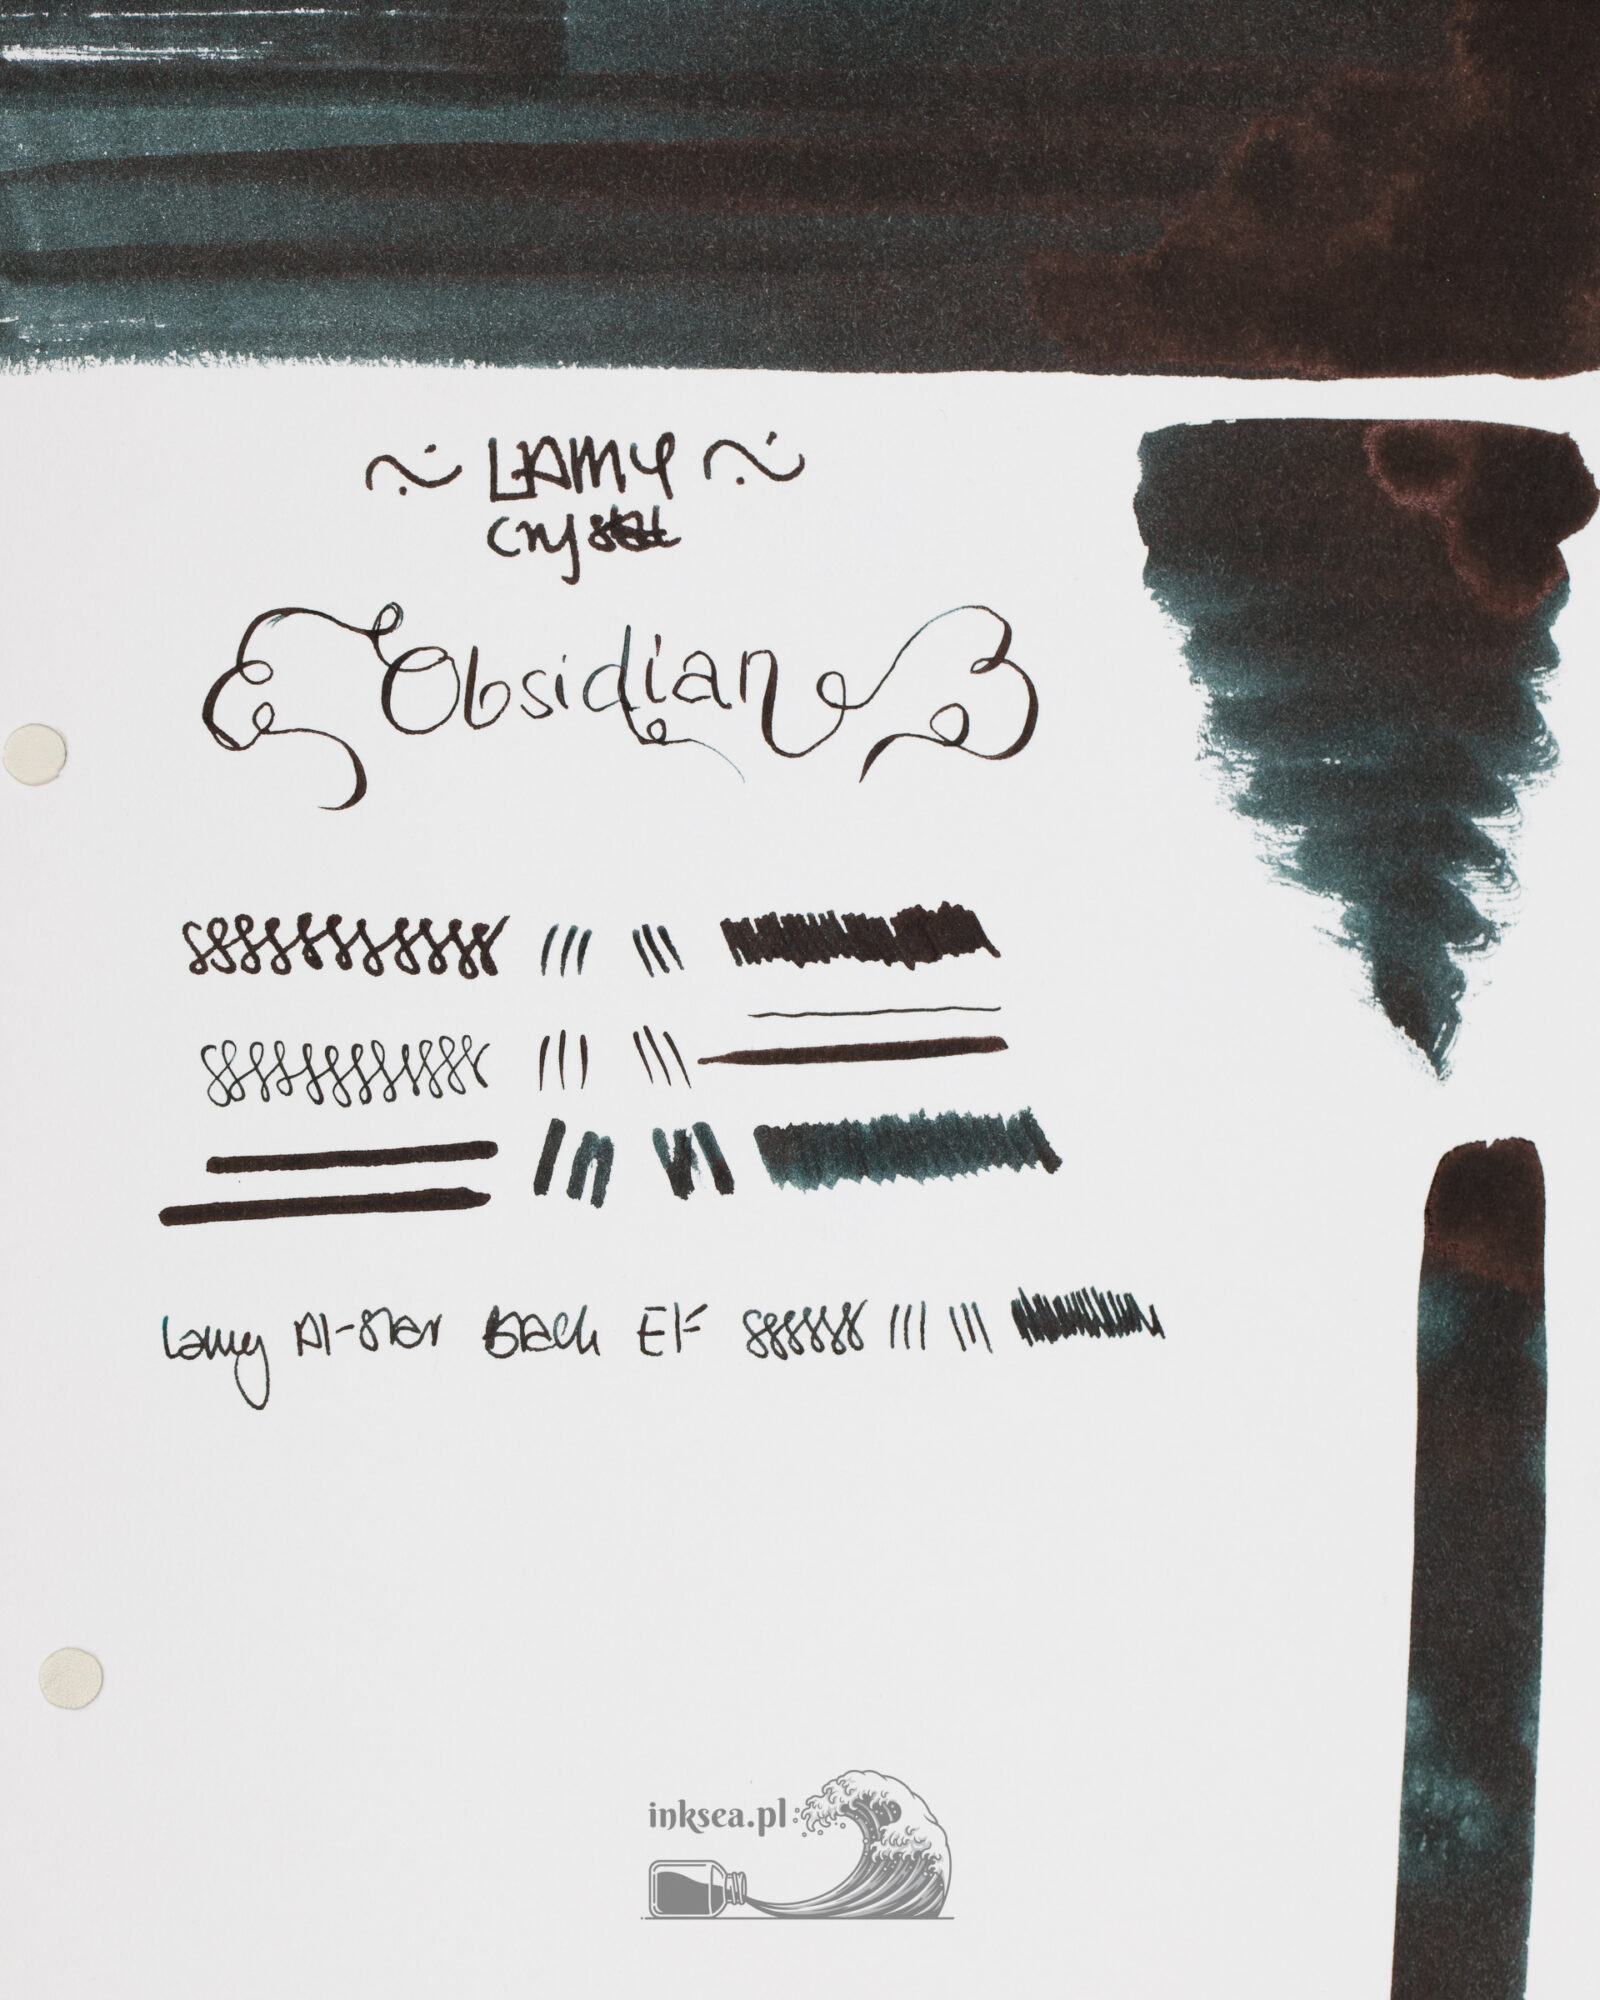 ~ LAMY ~
Crystal
Obsidian
Lamy Al-Star Black EF
inksea.pl